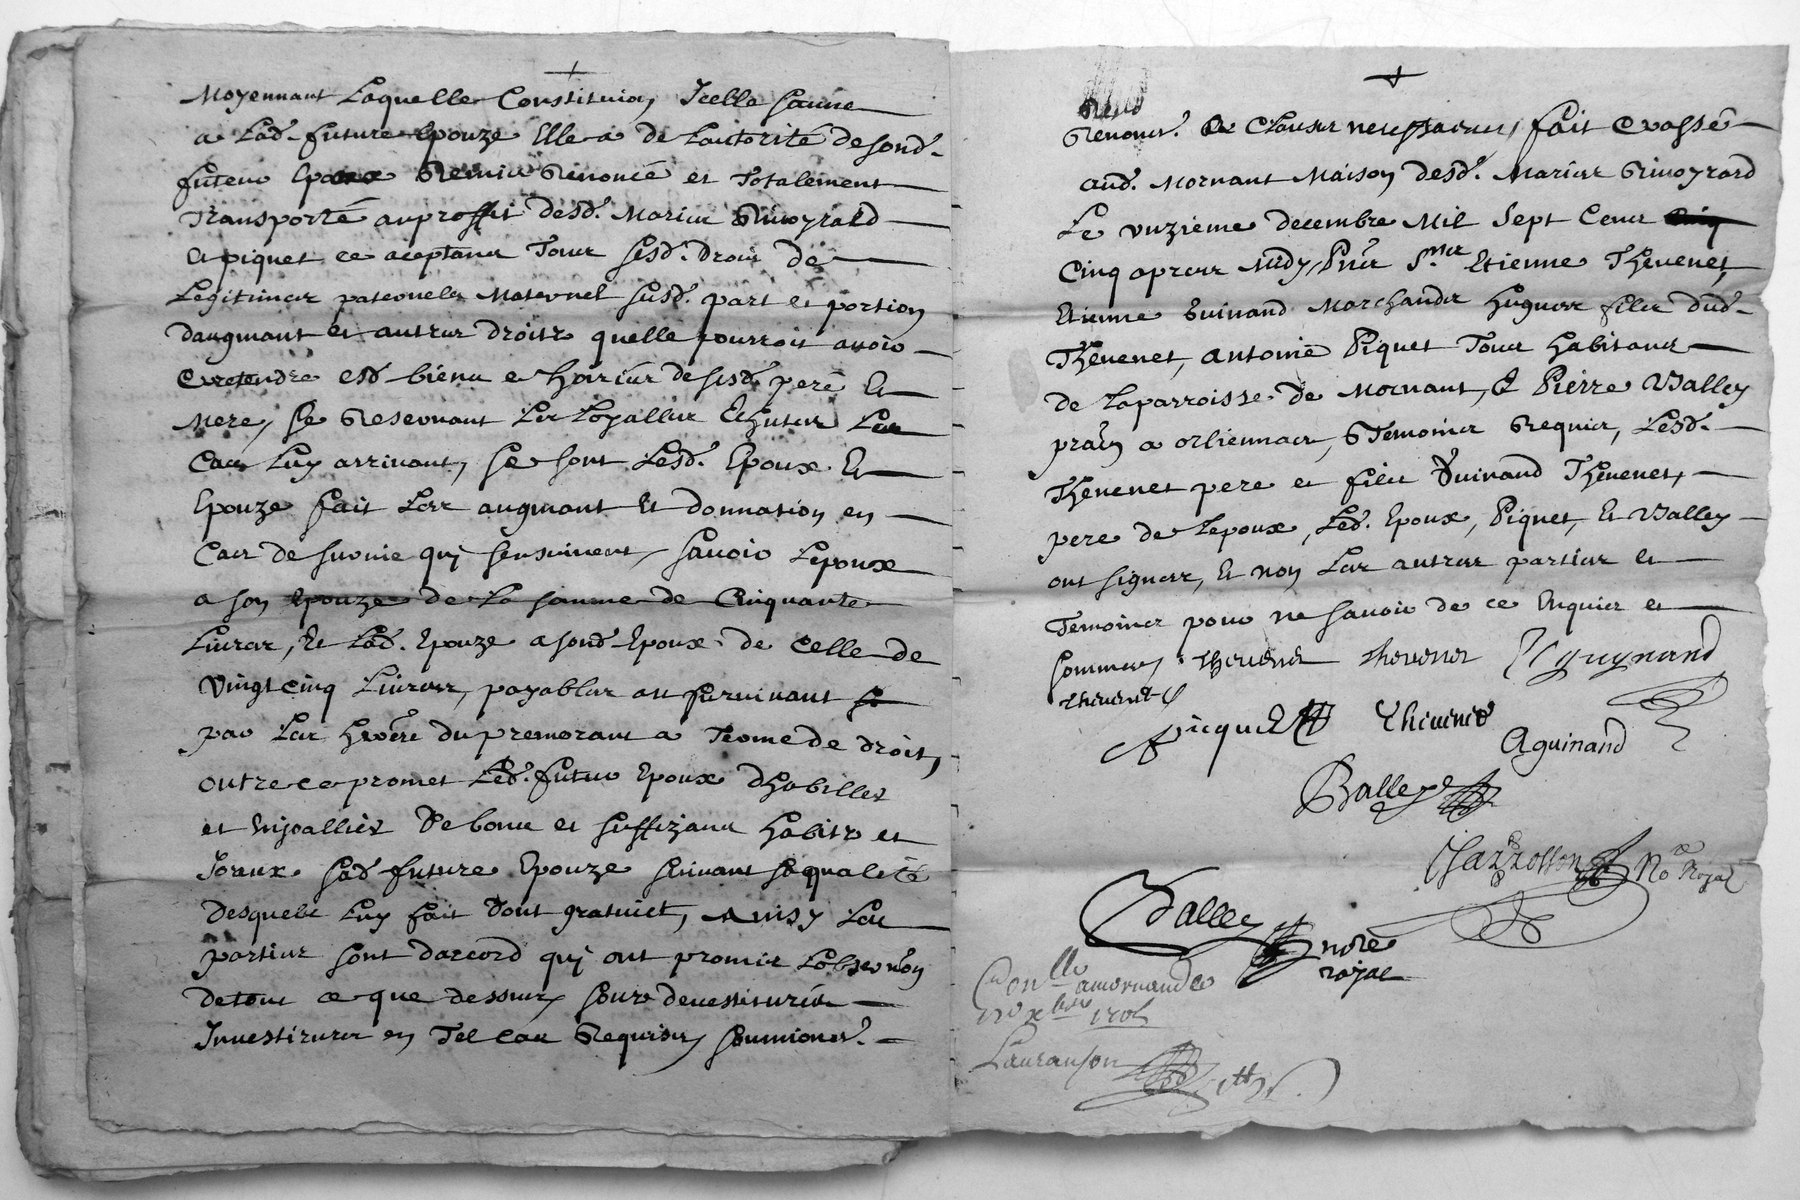 Moyennant Laquelle Constituion, Icelle sauve
a Lad. future Epouze Elle a de Lautorité de sond.
futeur Epoux Remis Renoncé et Totalement
Transporté au proffit desd. Mariez Rivoyrard
et piquet ce aceptans Tous sesd. Droits de
Legitimes paternels Maternel susd. part et portion
daugmant et autres droits quelle pourroit avoir
e pretendre esd. biens e hoiries de sesd. pere et
Mere, se Reservant Les Loyalles Echutes Les
Cas Luy arrivant, se sont Lesd. Epoux Et
Epouze fait Les augmant Et donnation en
Cas de survie quj sensuivent, savoir Lepoux
a son Epouze de La somme de Cinquante
Livres, Et Lad. Epouze a sond. Epoux de celle de
Vingtcinq Livres, payables au survivant
par Les hers du premorant a Terme de droit,
outre ce promet Led. futur Epoux dhabiller
et Enjoallier De bons et suffizans habits et
Joaux sad. future Epouze suivant sa qualité
desquels Luy fait Dont gratuict, Ainsy Les
parties sont dacord quj ont promis Lobservaon
de tout ce que dessus, sous devestitures
Investitures en Tel cas Requises, soumions.
Renons. & Clauses necessaires, fait e passé
aud. Mornant Maison desd. Mariez Rivoyrard
Le unzieme decembre Mil Sept Cens
Cinq apres Midy, Pnts Etienne Thevenet,
Etienne Guinand Marchands hugues filz dud.
Thevenet, antoine Piquet Tous habitans
de La parroisse de Mornant, & Pierre Valley
pratn a orliennas, Temoins Requis, Lesd.
Thevenet pere et filz Guinand Thevenet,
pere de Lepoux, Led. Epoux, Piquet, Et Valley
ont signez, Et non Les autres parties et
Temoins pour ne savoir de ce Enquis et
sommes, Thevenet thevenet E guynand
thevenet
picquet Thevenet
A guinand
Balley
Chazzosson No. Royal
Valley
notre
roial
Con.lle a mornand le
Xbre 1705
Lauranson